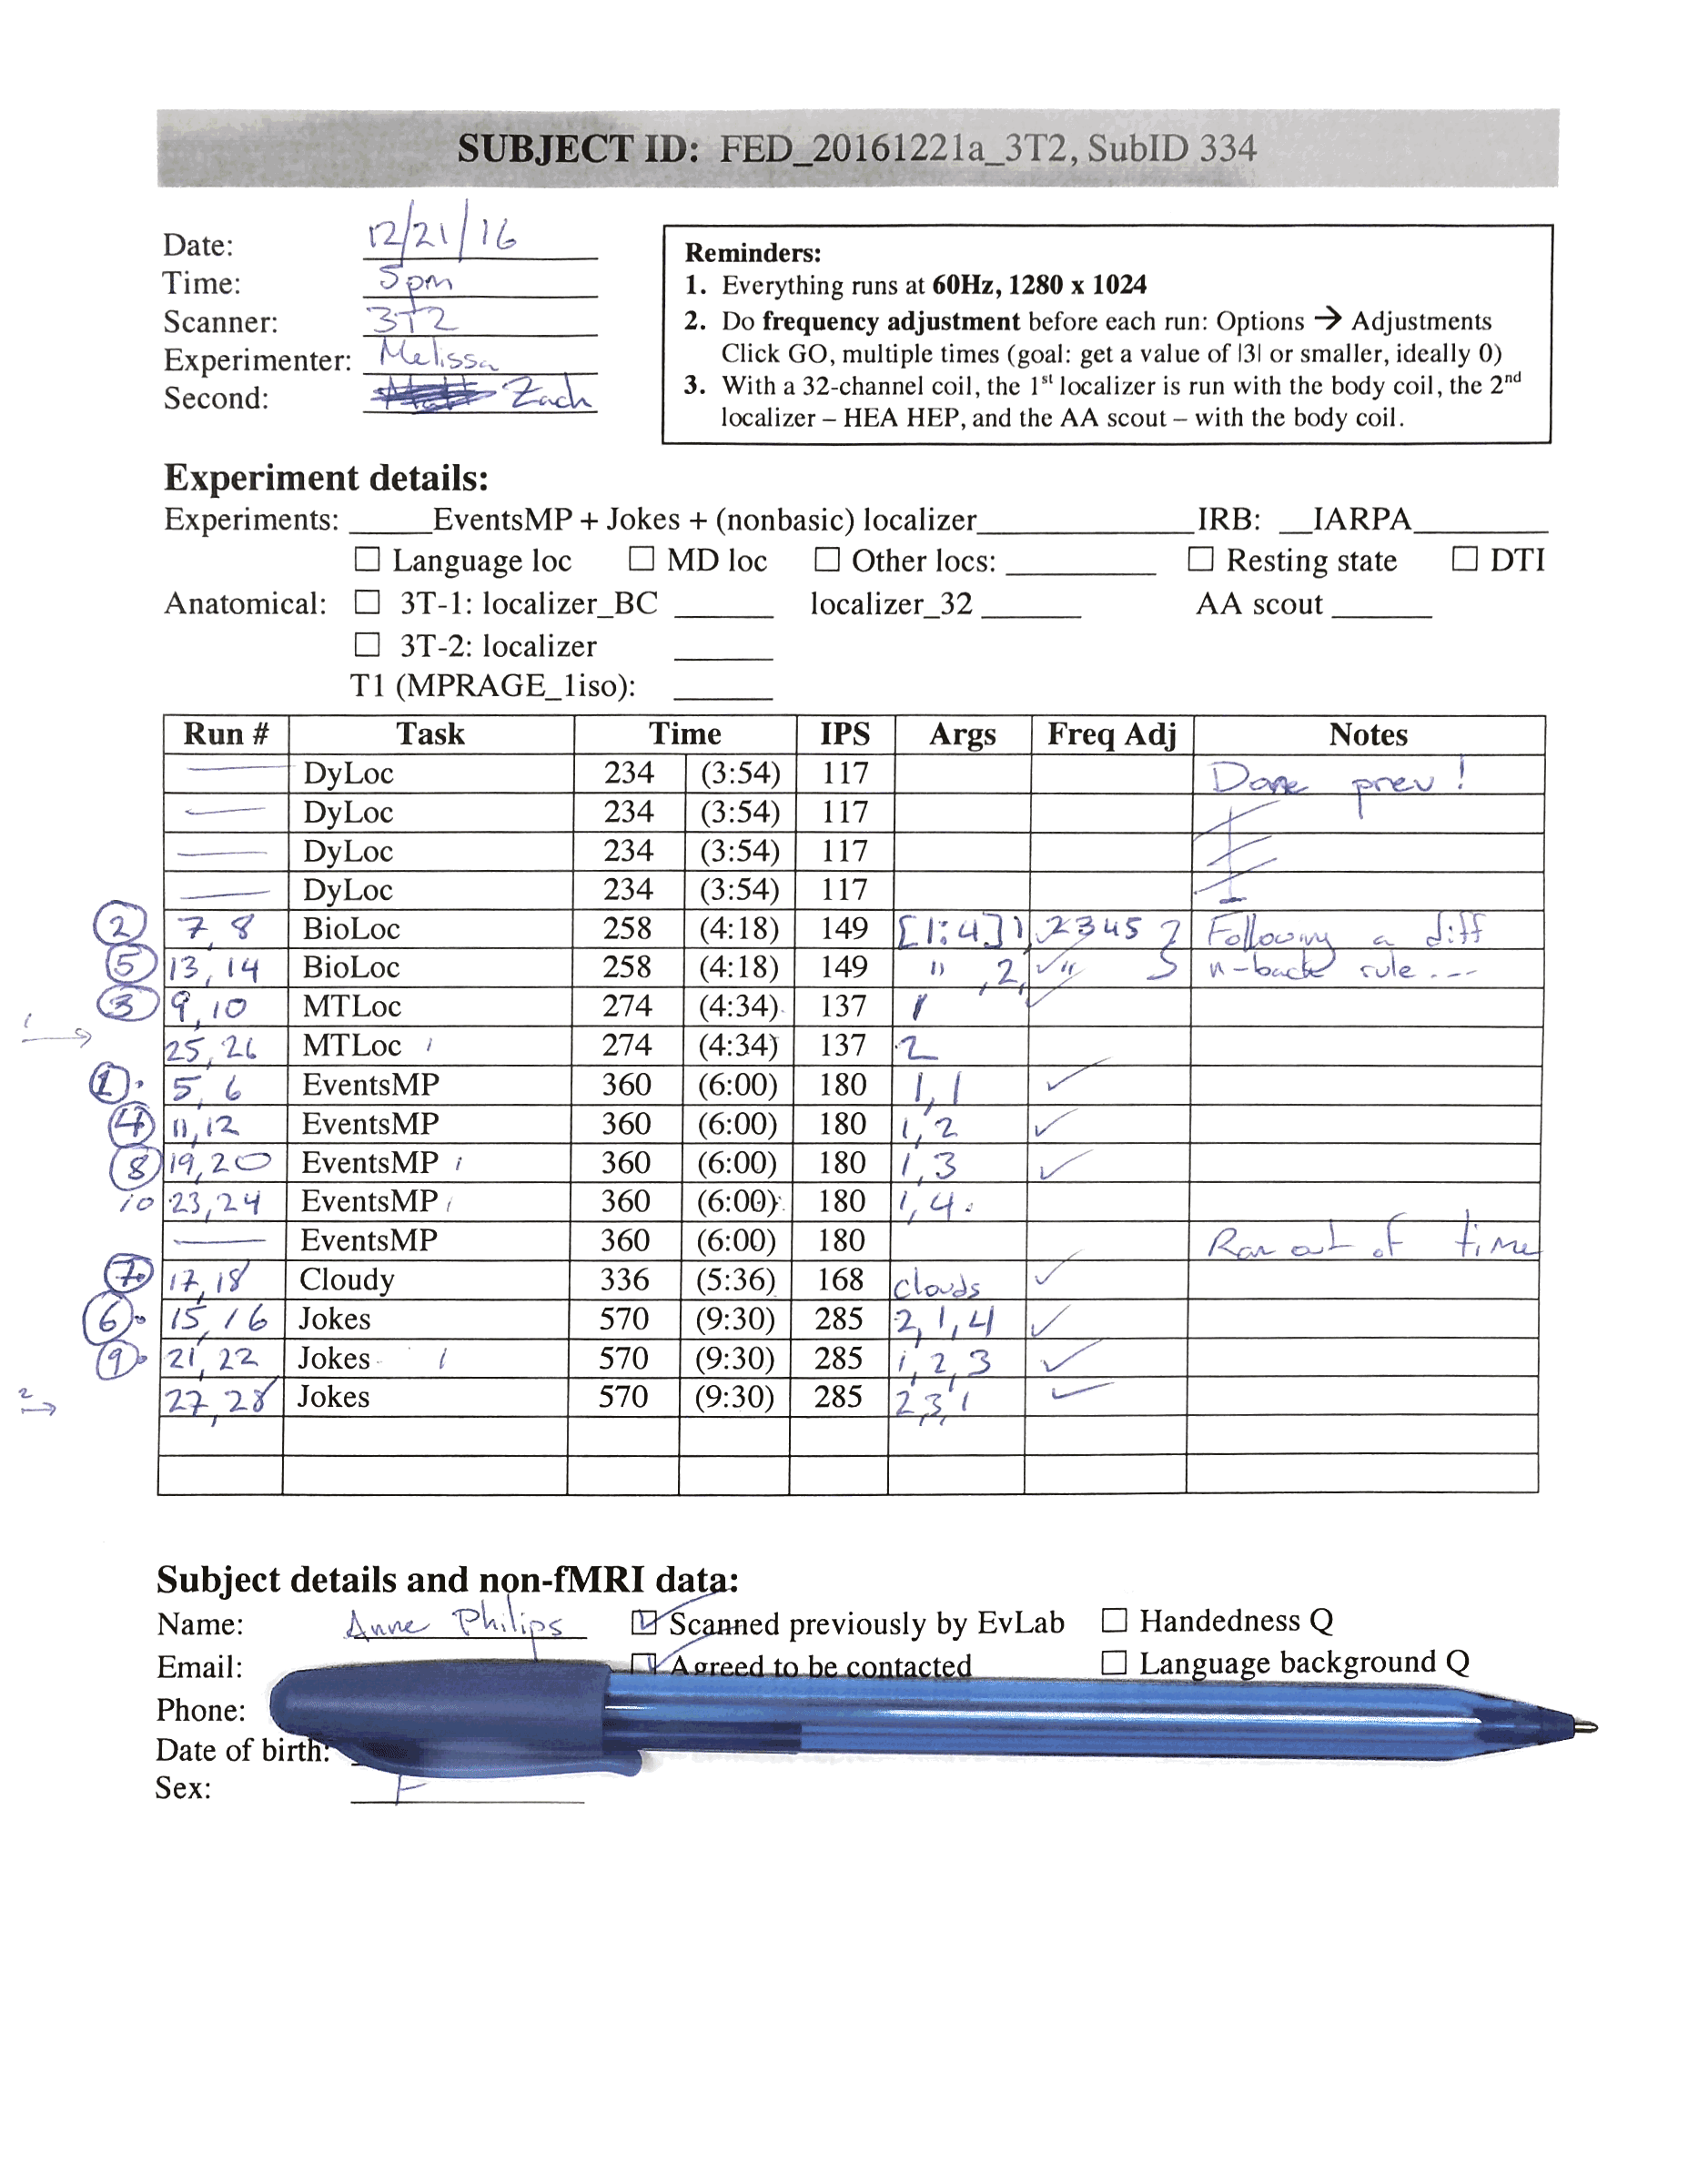 SUBJECT ID: FED_20161221a_3T2, SubID 334
Date: 12/21/16
Time: 5pm
Scanner: 3T2
Experimenter: Melissa
Second: Zach
Reminders:
1. Everything runs at 60Hz, 1280 x 1024
2. Do frequency adjustment before each run: Options → Adjustments
Click GO, multiple times (goal: get a value of |3| or smaller, ideally 0)
3. With a 32-channel coil, the 1st localizer is run with the body coil, the 2nd
localizer – HEA HEP, and the AA scout – with the body coil.
Experiment details:
Experiments: EventsMP + Jokes + (nonbasic) localizer IRB: IARPA
☐ Language loc ☐ MD loc ☐ Other locs: ☐ Resting state ☐ DTI
Anatomical: ☐ 3T-1: localizer_BC localizer_32 AA scout
☐ 3T-2: localizer
T1 (MPRAGE_1iso):
Run # Task Time IPS Args Freq Adj Notes
— DyLoc 234 (3:54) 117 Done prev!
— DyLoc 234 (3:54) 117
— DyLoc 234 (3:54) 117
— DyLoc 234 (3:54) 117
2 7, 8 BioLoc 258 (4:18) 149 [1:4] 1, 2345 Following a diff
5 13, 14 BioLoc 258 (4:18) 149 " , 2, " n-back rule ---
3 9, 10 MTLoc 274 (4:34) 137 1 ✓
1 → 25, 26 MTLoc 274 (4:34) 137 2
1 5, 6 EventsMP 360 (6:00) 180 1, 1 ✓
4 11, 12 EventsMP 360 (6:00) 180 1, 2 ✓
8 19, 20 EventsMP 360 (6:00) 180 1, 3 ✓
10 23, 24 EventsMP 360 (6:00) 180 1, 4
— EventsMP 360 (6:00) 180 Ran out of time
7 17, 18 Cloudy 336 (5:36) 168 clouds ✓
6 15, 16 Jokes 570 (9:30) 285 2, 1, 4 ✓
9 21, 22 Jokes 570 (9:30) 285 1, 2, 3 ✓
2 → 27, 28 Jokes 570 (9:30) 285 2, 3, 1 ✓
Subject details and non-fMRI data:
Name: Anne Philips ☑ Scanned previously by EvLab ☐ Handedness Q
Email: ☑ Agreed to be contacted ☐ Language background Q
Phone:
Date of birth:
Sex: F